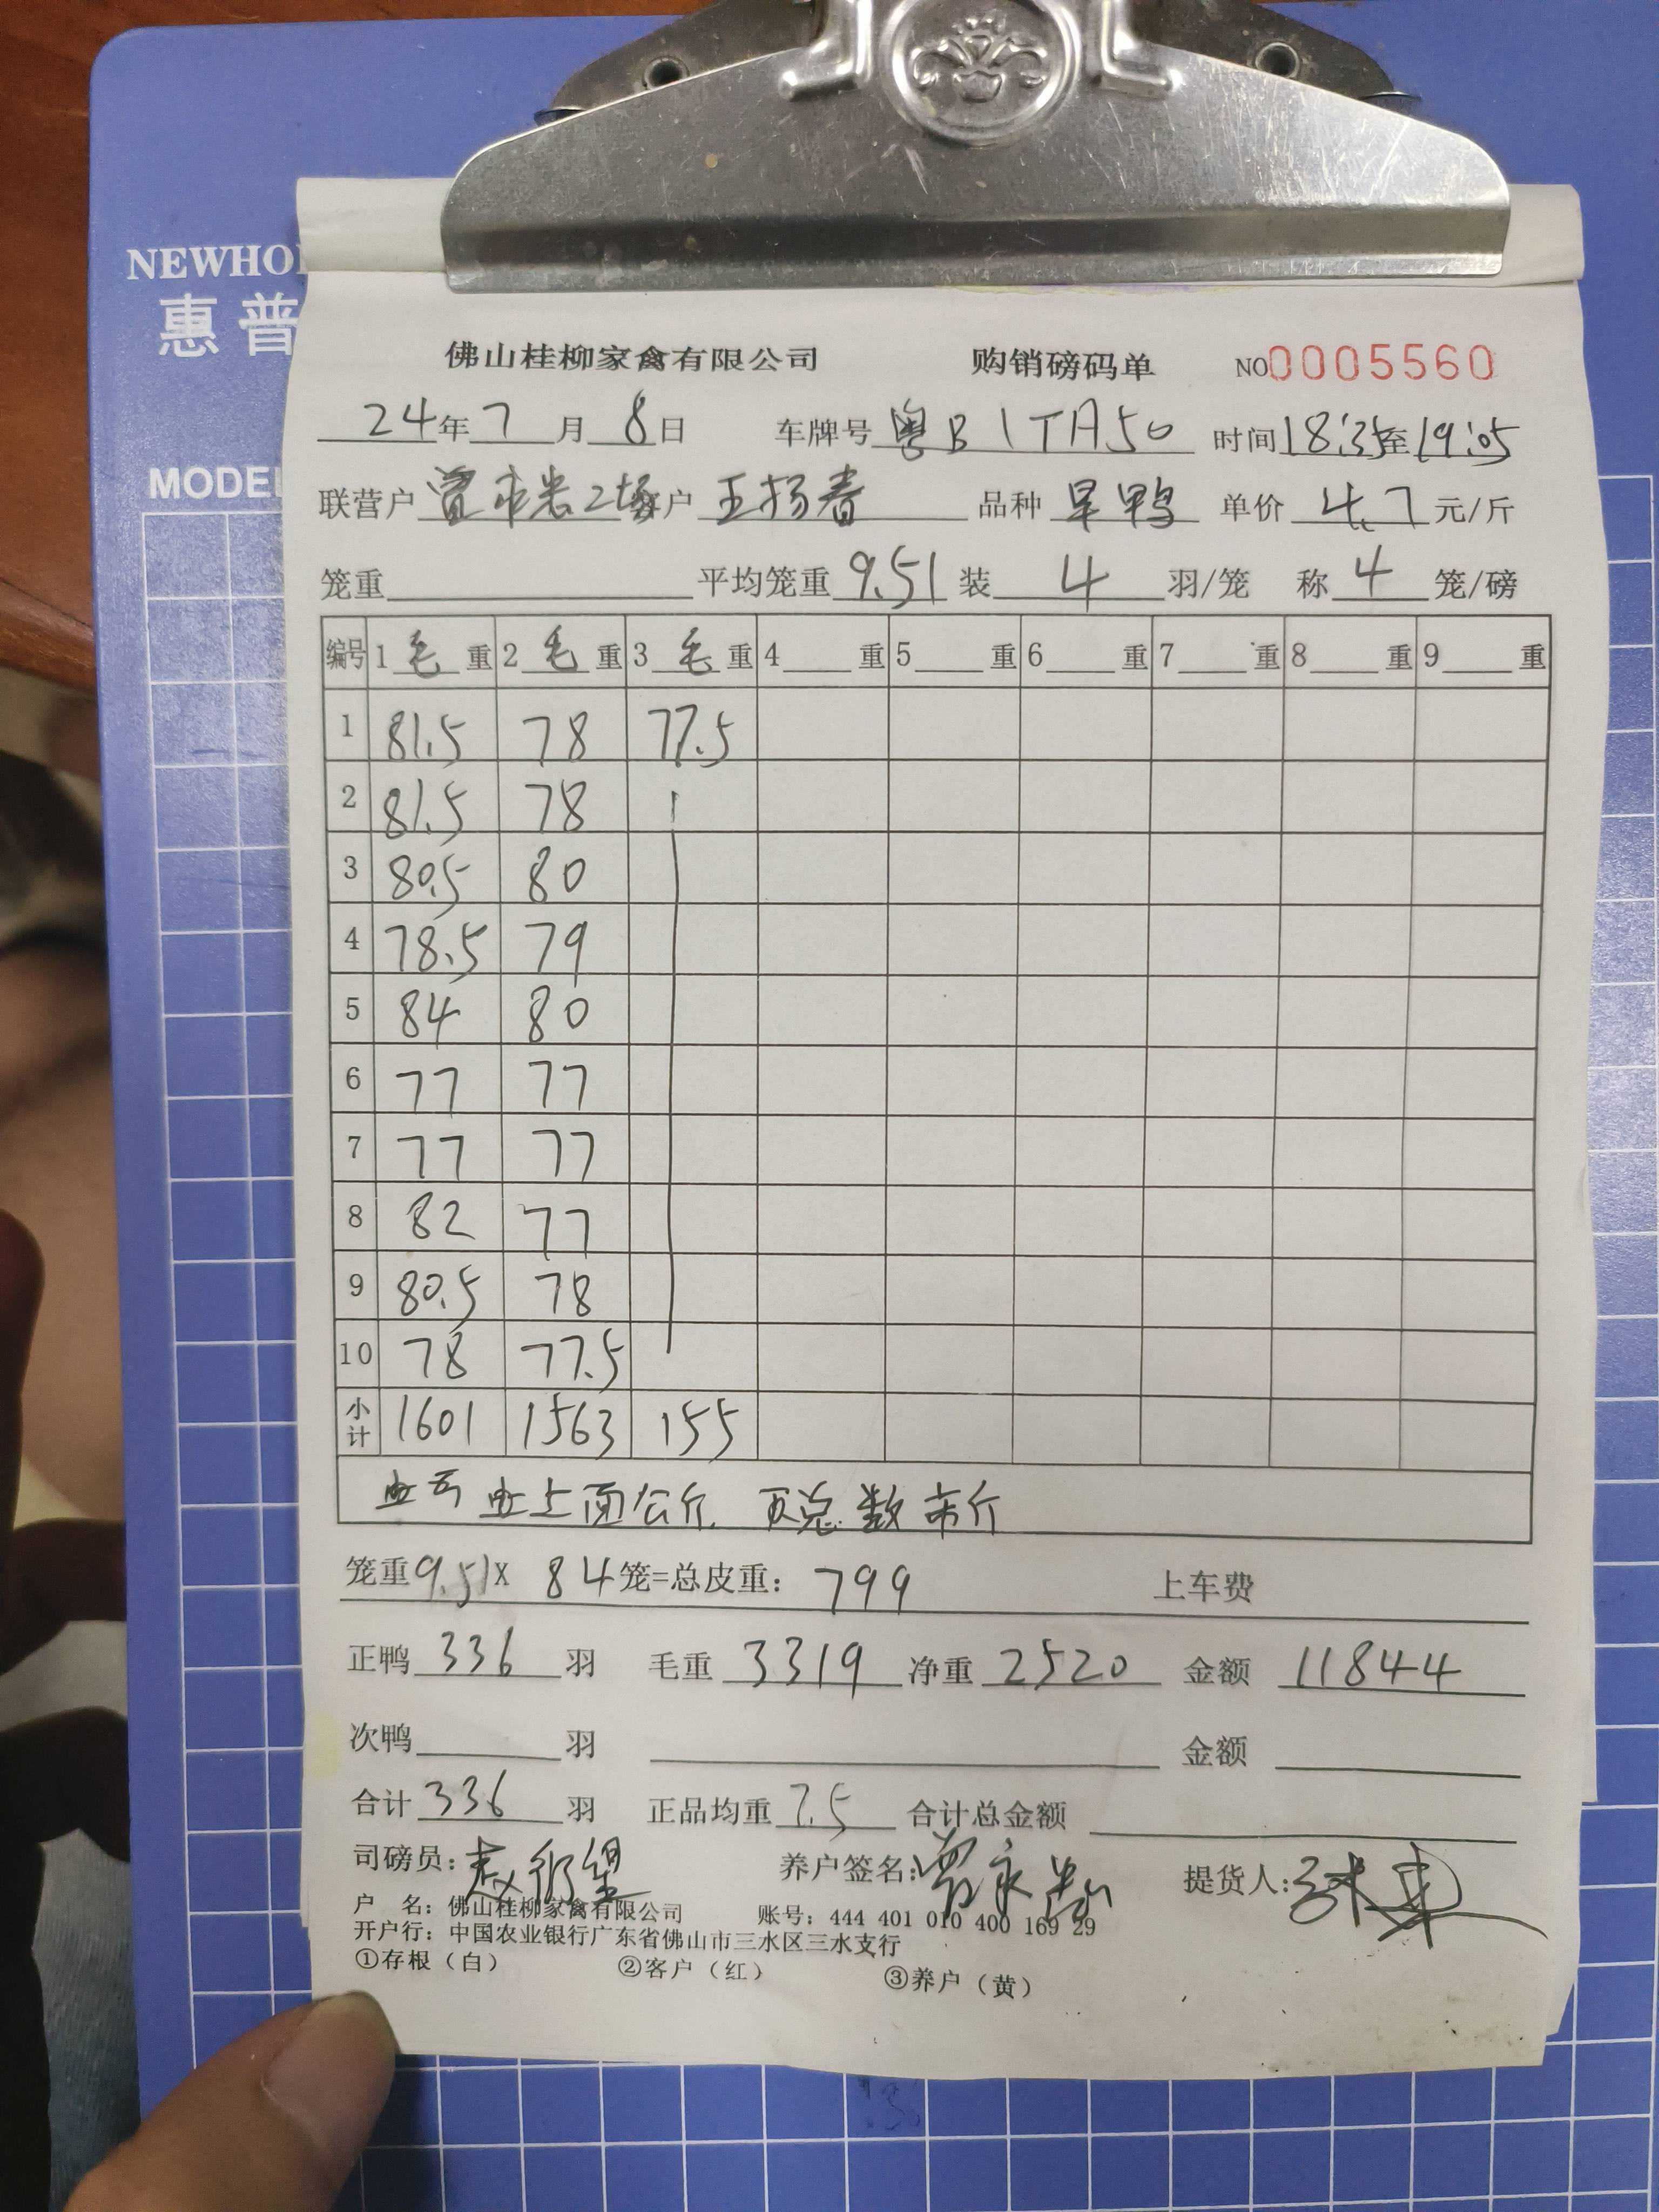 NEWHO
惠普
MODEL
佛山桂柳家禽有限公司 购销磅码单 NO0005560
24年7月8日 车牌号粤B1TA50 时间18:35至19:05
联营户 户 王扬春 品种 旱鸭 单价 4.7 元/斤
笼重 平均笼重 9.51 装 4 羽/笼 称 4 笼/磅
编号 1 毛 重 2 毛 重 3 毛 重 4 重 5 重 6 重 7 重 8 重 9 重
1 81.5 78 77.5
2 81.5 78
3 80.5 80
4 78.5 79
5 84 80
6 77 77
7 77 77
8 82 77
9 80.5 78
10 78 77.5
小计 1601 1563 155
上面公斤. 总数市斤
笼重9.51X 84笼=总皮重: 799 上车费
正鸭 336 羽 毛重 3319 净重 2520 金额 11844
次鸭 羽 金额
合计 336 羽 正品均重 7.5 合计总金额
司磅员: 养户签名: 提货人:
户 名: 佛山桂柳家禽有限公司 账号: 444 401 010 400 169 29
开户行: 中国农业银行广东省佛山市三水区三水支行
①存根（白） ②客户（红） ③养户（黄）